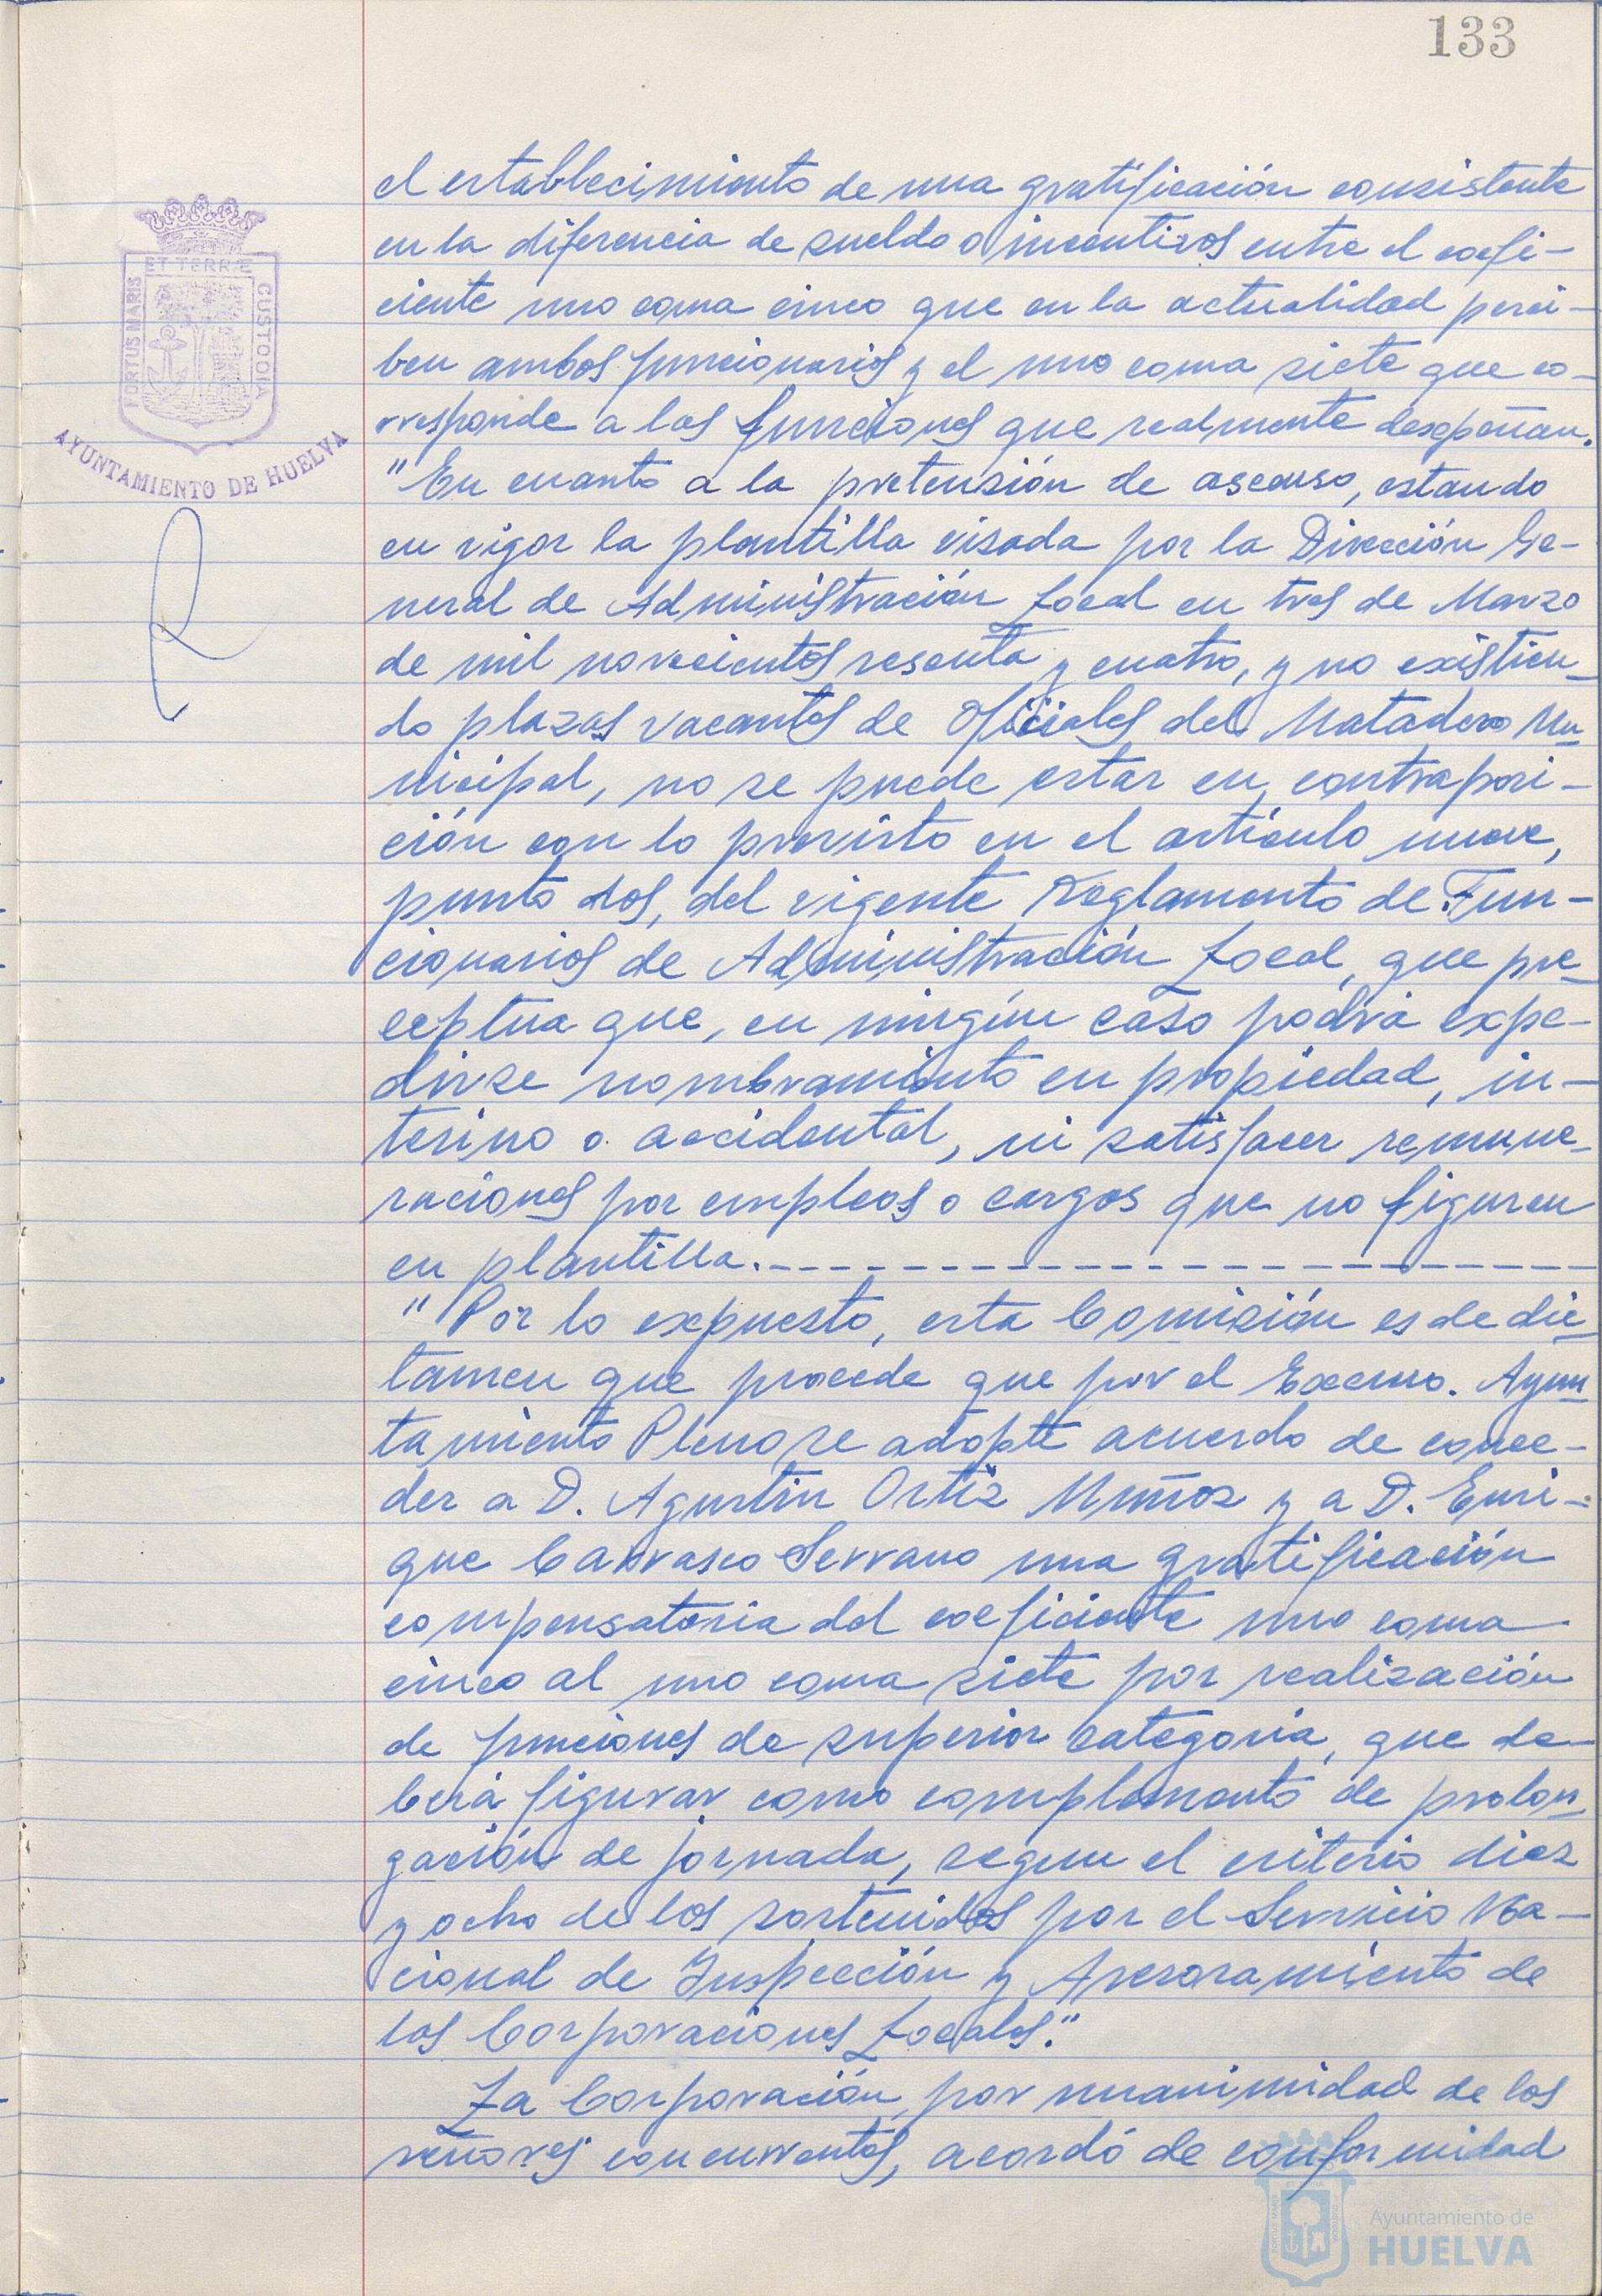 133
el establecimiento de una gratificación consistente
en la diferencia de sueldo o incentivos entre el coefi-
ciente uno coma cinco que en la actualidad perci-
ben ambos funcionarios y el uno coma siete que co-
rresponde a las funciones que realmente desepeñan.
"En cuanto a la pretensión de ascenso, estando
en vigor la plantilla visada por la Dirección Ge-
neral de Administración Local en tres de Marzo
de mil novecientos sesenta y cuatro, y no existien-
do plazas vacantes de Oficiales del Matadero Mu-
nicipal, no se puede estar en contraposi-
ción con lo previsto en el artículo nueve,
punto dos, del vigente Reglamento de Fun-
cionarios de Administración Local, que pre-
ceptua que, en ningún caso podrá expe-
dirse nombramiento en propiedad, in-
terino o accidental, ni satisfacer remune-
raciones por empleos o cargos que no figuren
en plantilla.
"Por lo expuesto, esta Comisión es de dic-
tamen que procede que por el Excmo. Ayun-
tamiento Pleno se adopte acuerdo de conce-
der a D. Agustín Ortiz Muñoz y a D. Enri-
que Carrasco Serrano una gratificación
compensatoria del coeficiente uno coma
cinco al uno coma siete por realización
de funciones de superior categoria, que de-
berá figurar como complemento de prolon-
gación de jornada, segun el criterio diez
y ocho de los sostenidos por el Servicio Na-
cional de Inspección y Asesoramiento de
las Corporaciones Locales."
La Corporación, por unanimidad de los
señores concurrentes, acordó de conformidad
PORTUS MARIS
ET TERRÆ
CUSTODIA
AYUNTAMIENTO DE HUELVA
Ayuntamiento de
HUELVA